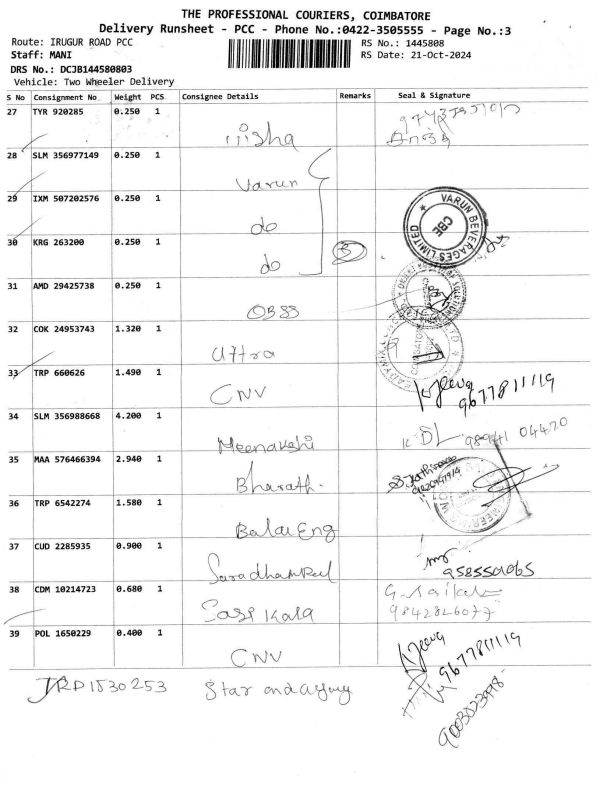 THE PROFESSIONAL COURIERS, COIMBATORE
Delivery Runsheet - PCC - Phone No.:0422-3505555 - Page No.:3
Route: IRUGUR ROAD PCC RS No.: 1445808
Staff: MANI RS Date: 21-Oct-2024
DRS No.: DCJB144580803
Vehicle: Two Wheeler Delivery
S No Consignment No. Weight PCS Consignee Details Remarks Seal & Signature
27 TYR 920285 0.250 1
28 SLM 356977149 0.250 1 Varun
29 IXM 507202576 0.250 1 do
VARUN BEVERAGES LIMITED
CBE
30 KRG 263200 0.250 1 do 3
31 AMD 29425738 0.250 1 OBSS
32 COK 24953743 1.320 1 Uttra
33 TRP 660626 1.490 1 CNV Jeeva
9677811119
34 SLM 356988668 4.200 1 Meenakshi 98941 04420
35 MAA 576466394 2.940 1 Bharath.
36 TRP 6542274 1.580 1 Balai Eng
37 CUD 2285935 0.900 1
38 CDM 10214723 0.680 1 Sasi Kala
9842846077
39 POL 1650229 0.400 1 CNV Jeeva
9677811119
1530253 Star